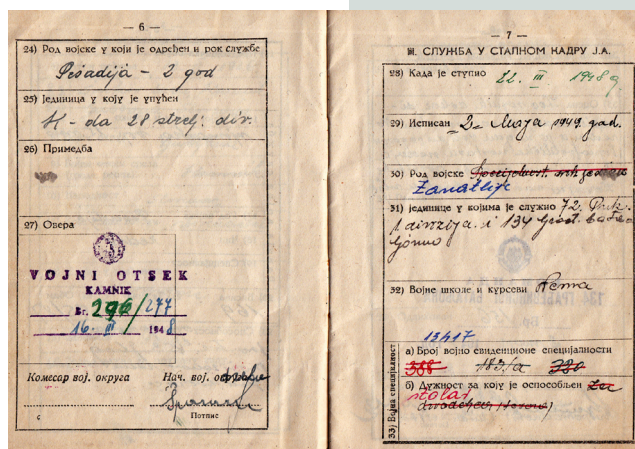 — 6 —
24) Род војске у који је одређен и рок службе
Pešadija - 2 god
25) Јединица у коју је упућен
K - da 28 strelj. div.
26) Примедба
27) Овера
VOJNI OTSEK
KAMNIK
Br. 296/277
16. III 1948
Комесар вој. округа
Нач. вој.
Потпис
с
— 7 —
III. СЛУЖБА У СТАЛНОМ КАДРУ Ј.А.
28) Када је ступио 22. III 1948 g
29) Исписан 2 Maja 1949. god.
30) Род војске
Zanatlije
31) Јединице у којима је служио 72.
1 divizija i 134
32) Војне школе и курсеви Nema
33) Војна специјалност
13417
а) Број војно евиденционе специјалности
388 183/a 380
б) Дужност за коју је оспособљен za
stolar